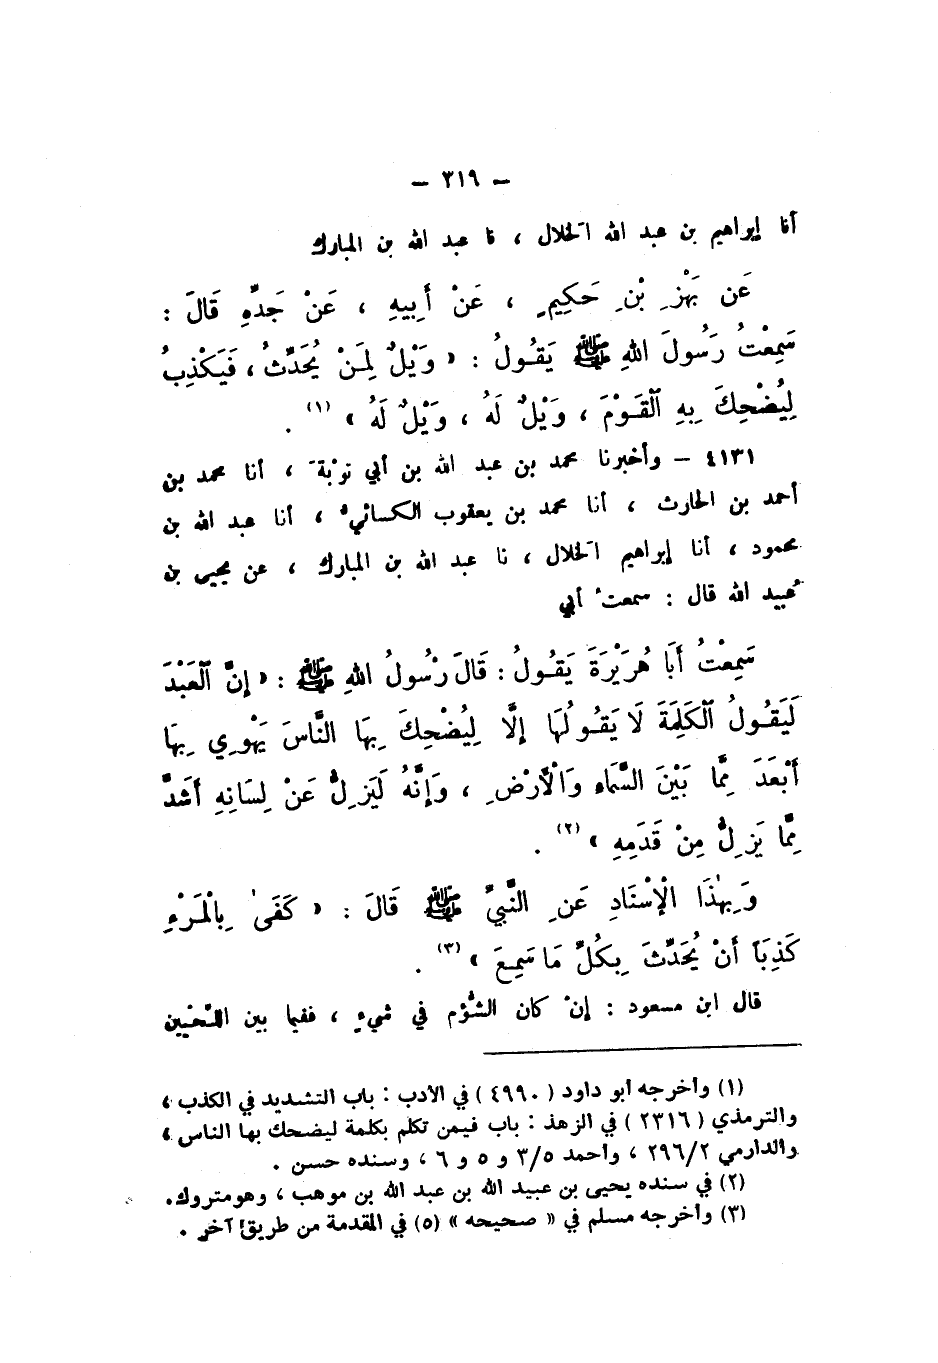 – ٣١٩ –
أنا إبراهيم بن عبد الله الخلال ، نا عبد الله بن المبارك
عَن بَهْزِ بْنِ حَكِيمٍ ، عَنْ أَبِيهِ ، عَنْ جَدِّهِ قَالَ :
سَمِعْتُ رَسُولَ اللهِ ﷺ يَقُولُ : « وَيْلٌ لِمَنْ يُحَدِّثُ ، فَيَكْذِبُ
لِيُضْحِكَ بِهِ ٱلْقَوْمَ ، وَيْلٌ لَهُ ، وَيْلٌ لَهُ » (١) .
٤١٣١ – وأخبرنا محمد بن عبد الله بن أبي توبَةَ ، أنا محمد بن
أحمد بن الحارث ، أنا محمد بن يعقوب الكسائيُ ، أنا عبد الله بن
محمود ، أنا إبراهيم الخلال ، نا عبد الله بن المبارك ، عن يحيى بن
عُبيد الله قال : سمعتُ أبي
سَمِعْتُ أَبَا هُرَيْرَةَ يَقُولُ : قَالَ رَسُولُ اللهِ ﷺ : « إِنَّ ٱلْعَبْدَ
لَيَقُولُ ٱلْكَلِمَةَ لَا يَقُولُهَا إِلَّا لِيُضْحِكَ بِهَا النَّاسَ يَهْوِي بِهَا
أَبْعَدَ مِمَّا بَيْنَ السَّمَاءِ وَالْأَرْضِ ، وَإِنَّهُ لَيَزِلُّ عَنْ لِسَانِهِ أَشَدَّ
مِمَّا يَزِلُّ مِنْ قَدَمِهِ » (٢) .
وَبِهٰذَا الْإِسْنَادِ عَنِ النَّبِيِّ ﷺ قَالَ : « كَفَىٰ بِالْمَرْءِ
كَذِبَاً أَنْ يُحَدِّثَ بِكُلِّ مَا سَمِعَ » (٣) .
قال ابن مسعود : إنْ كان الشُّؤم في شيءٍ ، ففيما بين اللَّحْيين
(١) وأخرجه أبو داود ( ٤٩٩٠ ) في الأدب : باب التشديد في الكذب ،
والترمذي ( ٢٣١٦ ) في الزهد : باب فيمن تكلم بكلمة ليضحك بها الناس ،
والدارمي ٢٩٦/٢ ، وأحمد ٣/٥ و ٥ و ٦ ، وسنده حسن .
(٢) في سنده يحيى بن عبيد الله بن عبد الله بن موهب ، وهو متروك .
(٣) وأخرجه مسلم في « صحيحه » (٥) في المقدمة من طريق آخر .